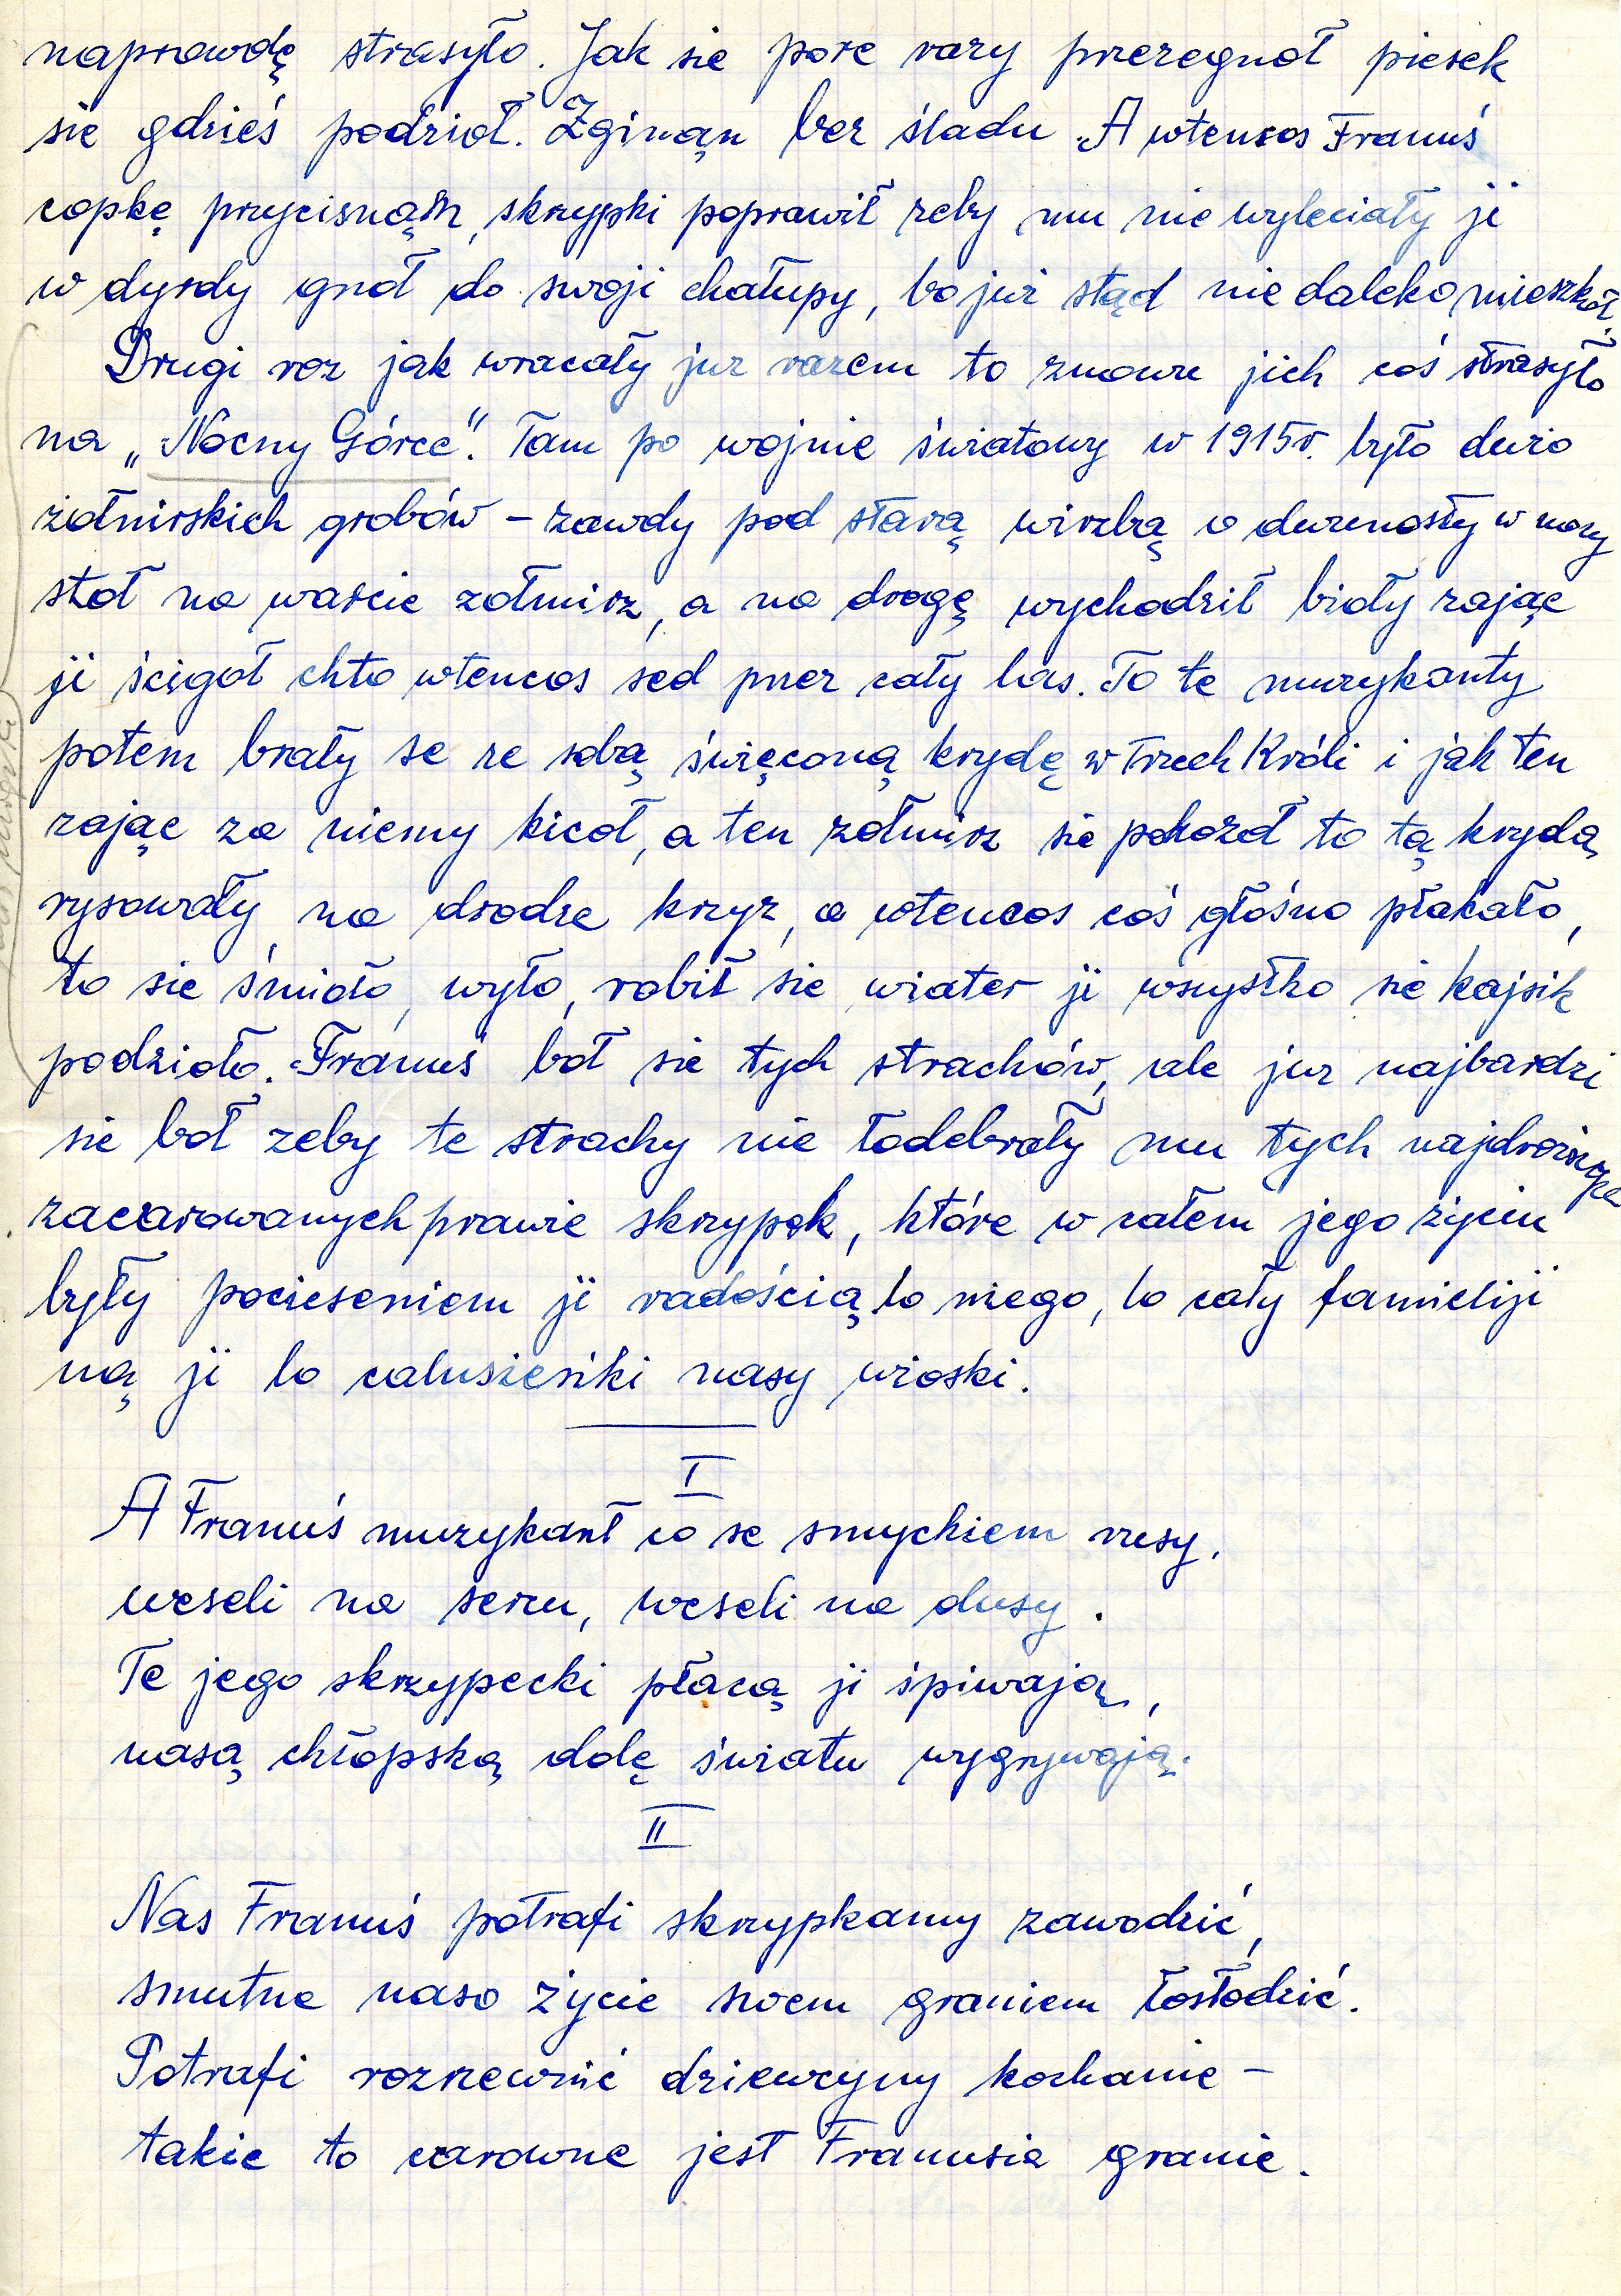 naprowdę strasyło. Jak sie pore razy przezegnoł piesek
sie gdzieś podzioł. Zginąn bez śladu. A wtencos Franuś
copkę przycisnąn, skrzypki poprawił zeby mu nie wyleciały ji
w dyrdy gnoł do swoji chałupy, bo juz stąd nie daleko mieszkoł.
Drugi roz jak wracały juz razem to znowu jich coś strasyło
na „Nocny Górce”. Tam po wojnie światowy w 1915r. było duzo
żołnirskich grobów – zawdy pod starą wirzbą o dwunosty w nocy
stoł na warcie zołnirz, a na drogę wychodził bioły zając
ji ścigoł chto wtencos sed przez cały las. To te muzykanty
potem brały se ze sobą święconą krydę w Trzech Króli i jak ten
zając za niemy kicoł, a ten zołnirz sie pokozoł to tą krydą
rysowały na drodze krzyz, a wtencos coś głośno płakało,
to sie śmioło, wyło, robił sie wiater ji wszystko sie kajsik
podzioło. Franuś boł sie tych strachów, ale juz najbardzi
sie boł zeby te strachy nie łodebrały mu tych najdrozszych
zacarowanych prawie skrzypek, które w całem jego życiu
były pocieseniem ji radością lo niego, lo cały familiji
ną ji lo calusieńki nasy wioski.
I
A Franuś muzykant co se smyckiem rusy,
weseli na sercu, weseli na dusy.
Te jego skrzypecki płacą ji śpiwają,
nasą chłopską dolę światu wygrywają.
II
Nas Franuś potrafi skrzypkamy zawodzić,
smutne naso życie swoem graniem łosłodzić.
Potrafi rozrzewnić dziewcyny kochanie –
takie to carowne jest Franusia granie.